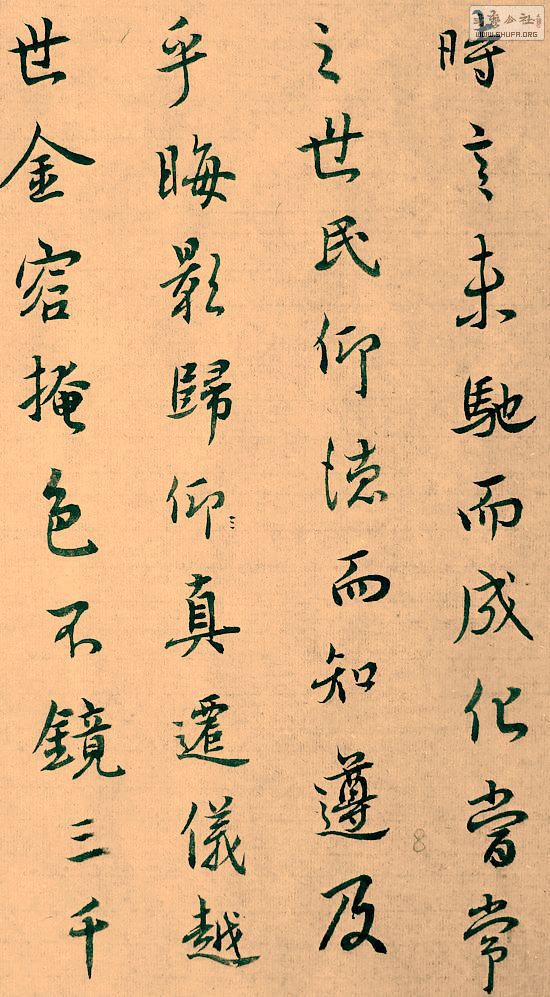 時言未馳而成化當常
之世民仰德而知遵及
乎晦影歸仰真遷儀越
世金容掩色不鏡三千
公社
WWW.SHUFA.ORG
8